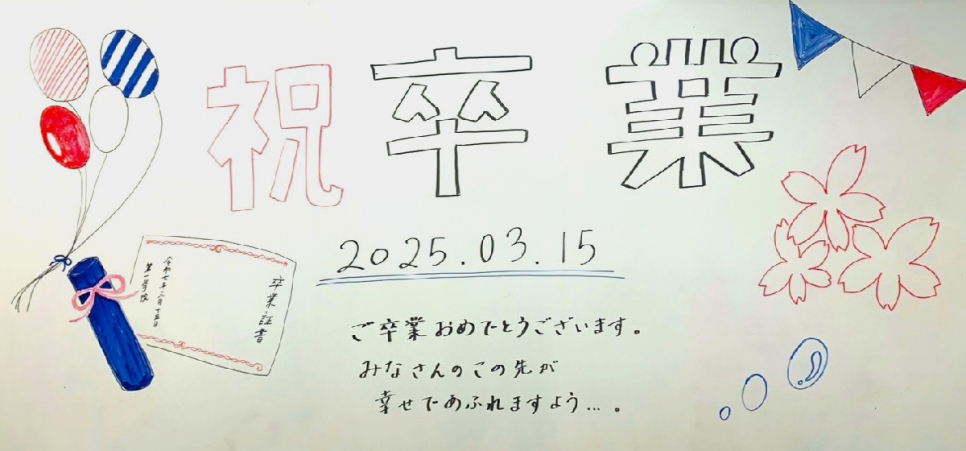 祝卒業
2025.03.15
卒業証書
令和七年三月十五日
第一学院
ご卒業おめでとうございます。
みなさんのこの先が
幸せであふれますよう…。